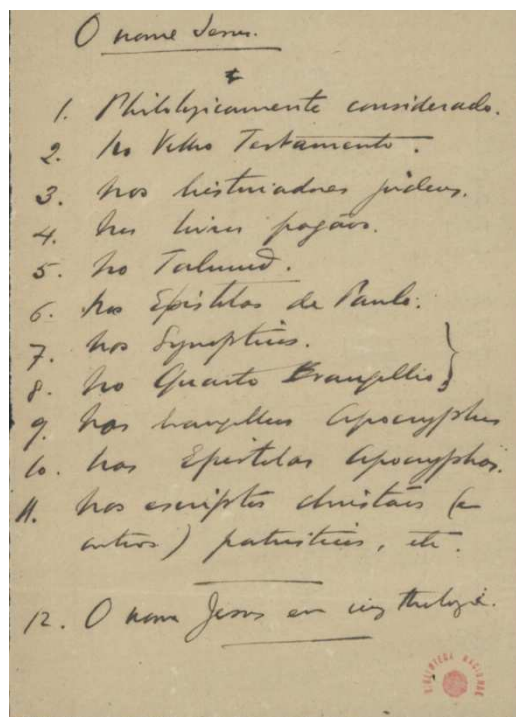 O nome Jesus.
1. Philologicamente considerado.
2. No Velho Testamento.
3. Nos historiadores judeus.
4. Nos livros pagãos.
5. No Talmud.
6. Nas Epistolas de Paulo.
7. Nos Synopticos.
8. No Quarto Evangelho
9. Nos evangelhos Apocryphos
10. Nas Epistolas Apocryphas.
11. Nos escriptos christãos (e
outros) patristicos, etc.
12. O nome Jesus em mythologia.
BIBLIOTECA NACIONAL